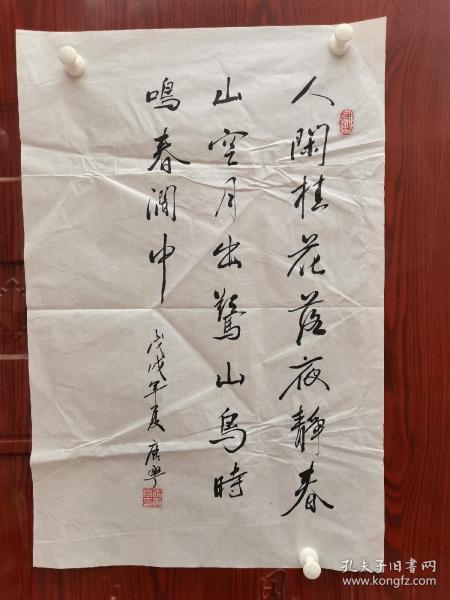 人閑桂花落夜靜春
山空月出驚山鳥時
鳴春澗中
戊戌年夏
孔夫子旧书网
www.kongfz.com